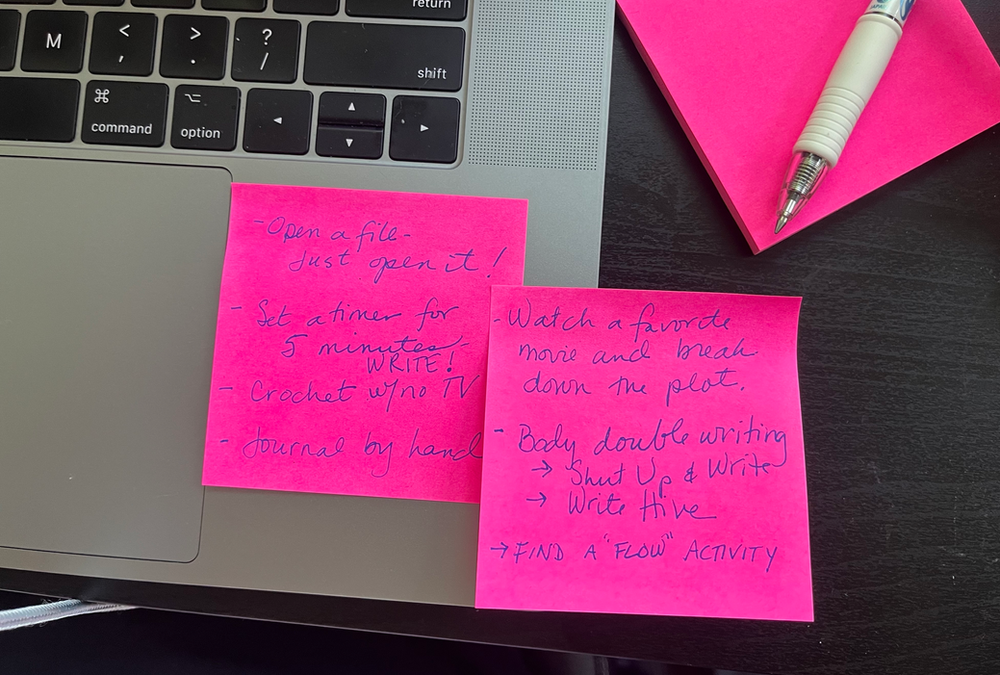 return
M
< >
, .
?
/
shift
⌘
command
⌥
option
◄ ▲ ▼ ►
-Open a file-
Just open it!
- Set a timer for
5 minutes-
WRITE!
- Crochet w/no TV
- Journal by hand
- Watch a favorite
movie and break
down the plot.
- Body double writing
→ Shut Up & Write
→ Write Hive
→ FIND A "FLOW" ACTIVITY